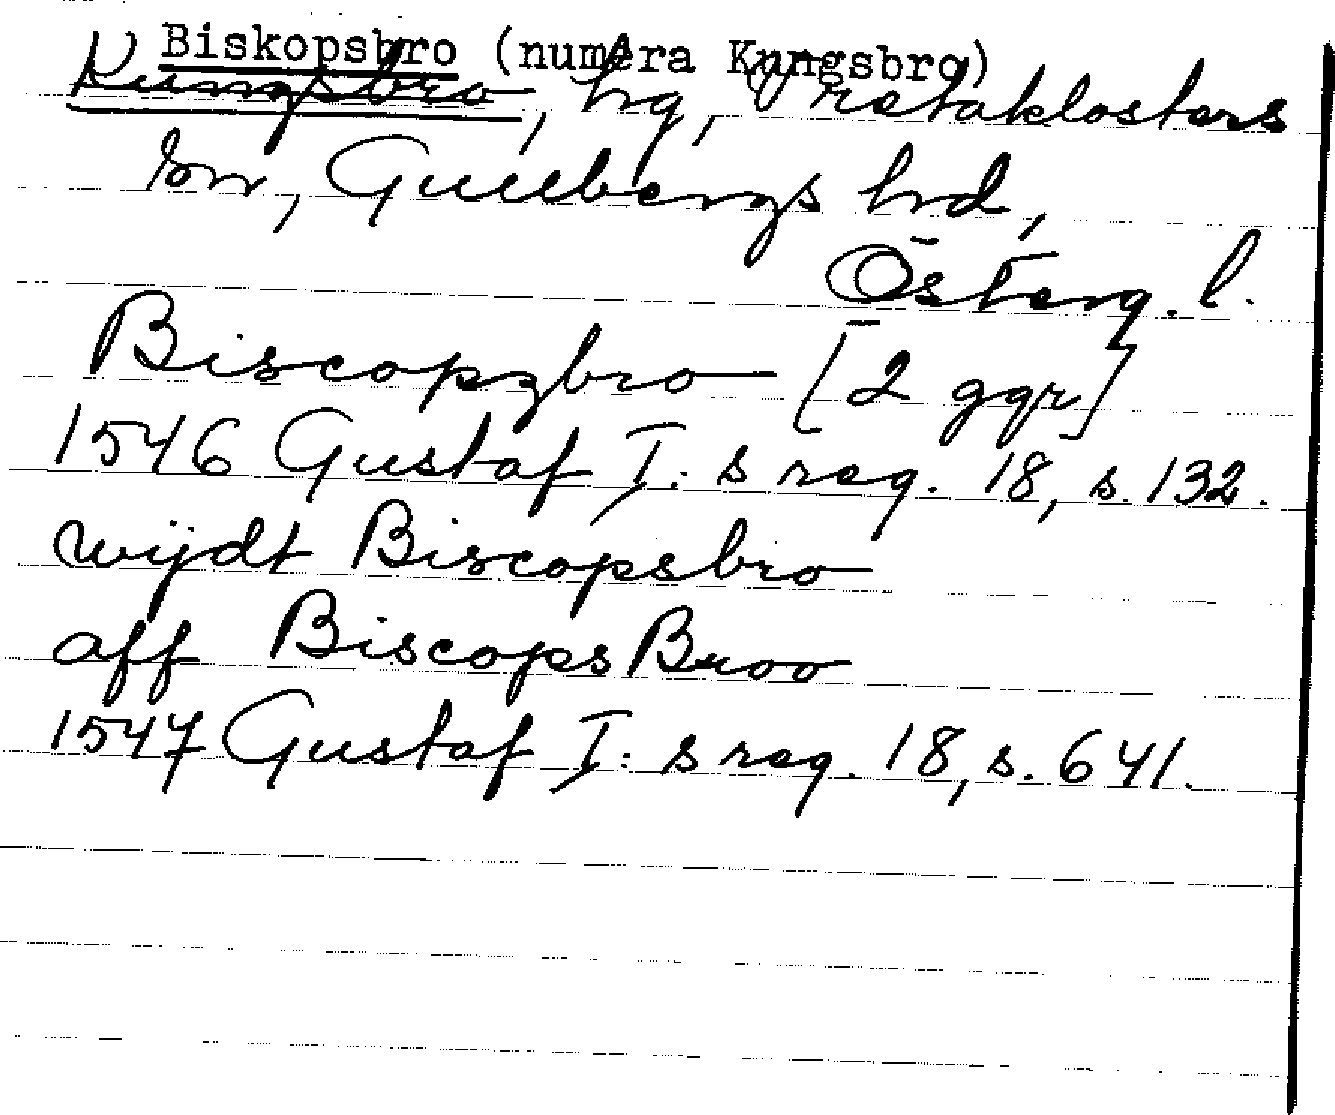 Biskopsbro (numera Kungsbro)
Kungsbro, hg, Vretaklosters
sn, Gullbergs hrd,
Österg. l.
Biscopzbro [2 ggr]
1546 Gustaf I:s reg. 18, s. 132.
wijdt Biscopsbro
aff Biscops Broo
1547 Gustaf I:s reg. 18, s. 641.